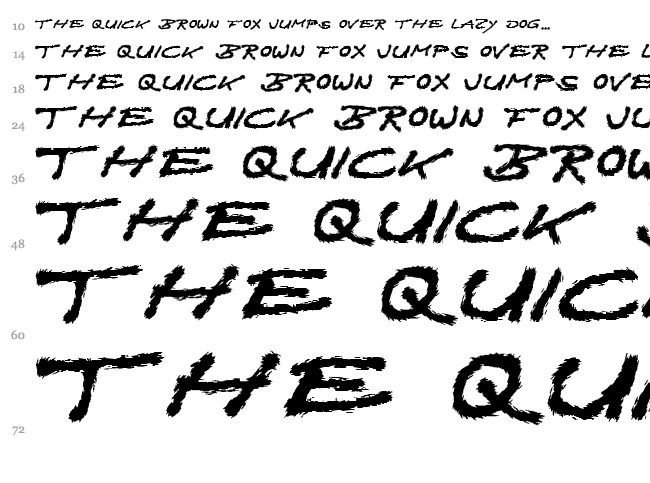 10 THE QUICK BROWN FOX JUMPS OVER THE LAZY DOG...
14 THE QUICK BROWN FOX JUMPS OVER THE L
18 THE QUICK BROWN FOX JUMPS OVE
24 THE QUICK BROWN FOX JU
36 THE QUICK BROW
48 THE QUICK
60 THE QUIC
72 THE QUI